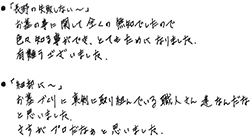 ●「長野の失敗しない〜」
お墓の事に関して全くの無知でしたので
色々知る事ができ、とてもためになりました。
有難うございました。
●「細部に〜」
お墓づくりに真剣に取り組んでいる職人さん達なんだな
と思いました。
さすがプロだなぁと思いました。